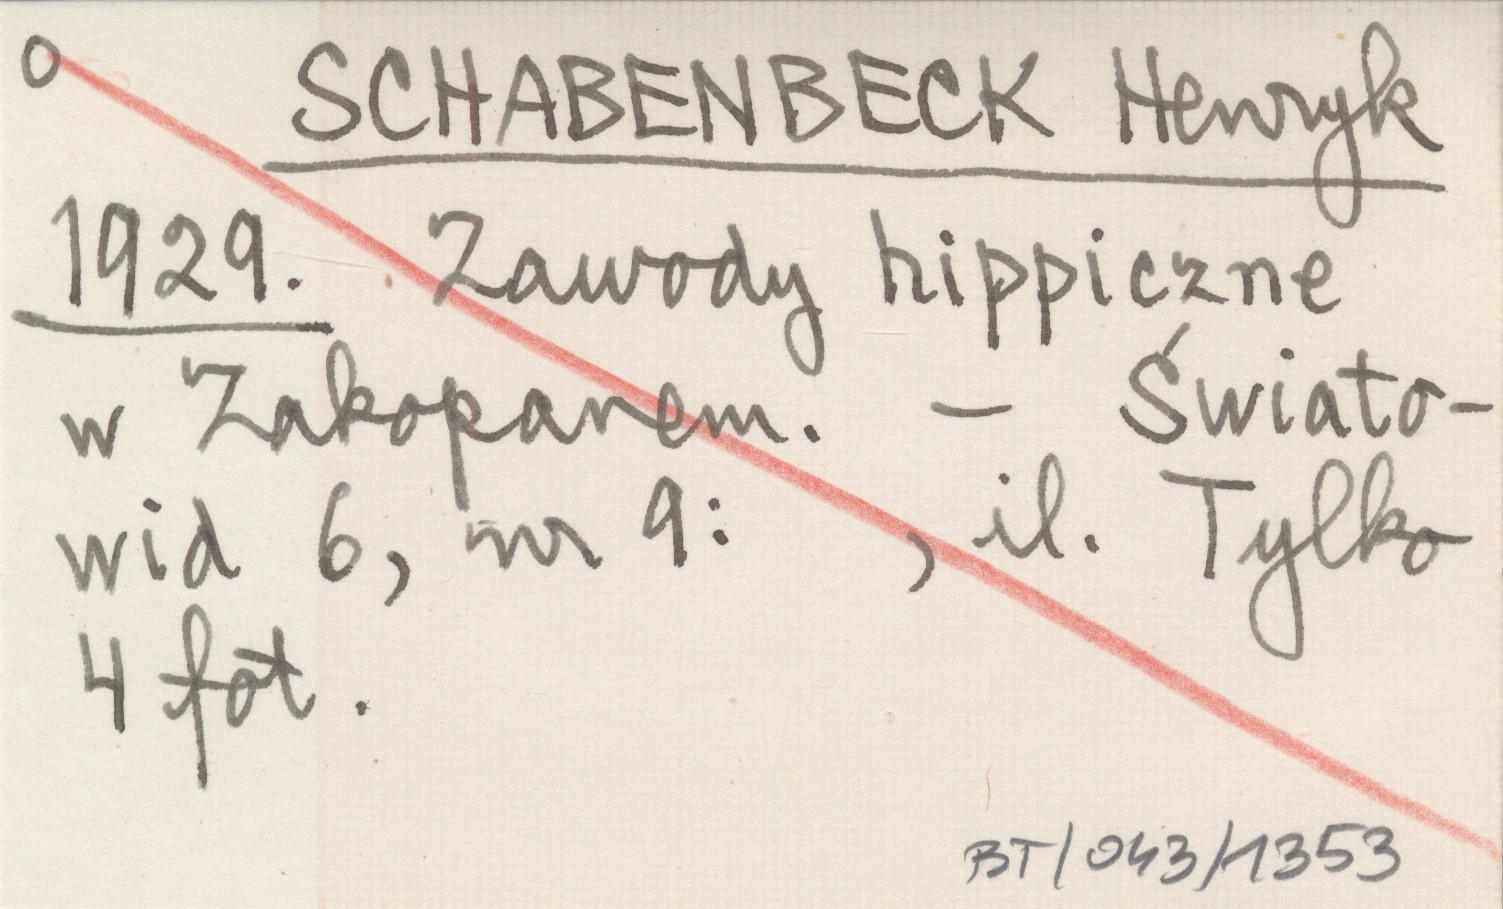 O SCHABENBECK Henryk
1929. Zawody hippiczne
w Zakopanem. – Świato-
wid 6, nr 9: , il. Tylko
4 fot.
BT/043/1353